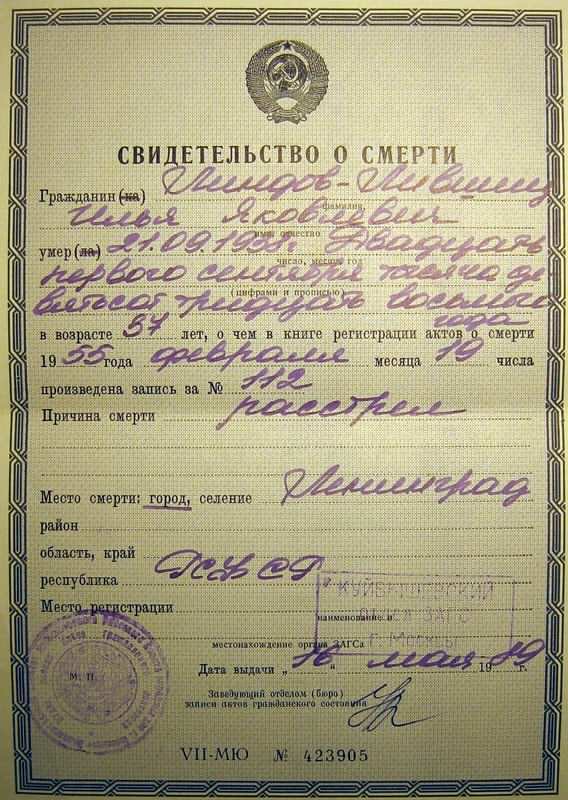 СВИДЕТЕЛЬСТВО О СМЕРТИ
Гражданин (ка) Линдов-Лившиц
фамилия,
Илья Яковлевич
имя отчество
умер(ла) 21.09.1938г. Двадцать
число, месяц, год
первого сентября тысяча де-
(цифрами и прописью)
вятьсот тридцать восьмого
года
в возрасте 57 лет, о чем в книге регистрации актов о смерти
1955 года февраля месяца 19 числа
произведена запись за № 112
Причина смерти расстрел
Место смерти: город, селение Ленинград
район
область, край
республика РСФСР
Место регистрации
КУЙБЫШЕВСКИЙ
наименование и
ОТДЕЛ ЗАГС
г. МОСКВЫ
местонахождение органа ЗАГСа
Дата выдачи „16“ мая 1989 г.
М. П.
Заведующий отделом (бюро)
записи актов гражданского состояния
VII-МЮ № 423905